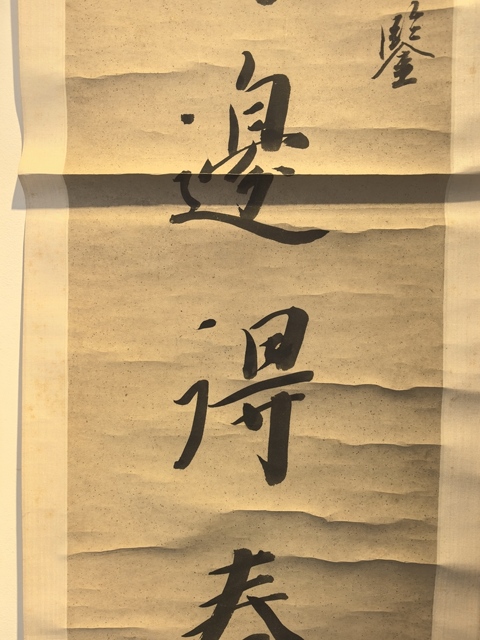 鑒
邊得春